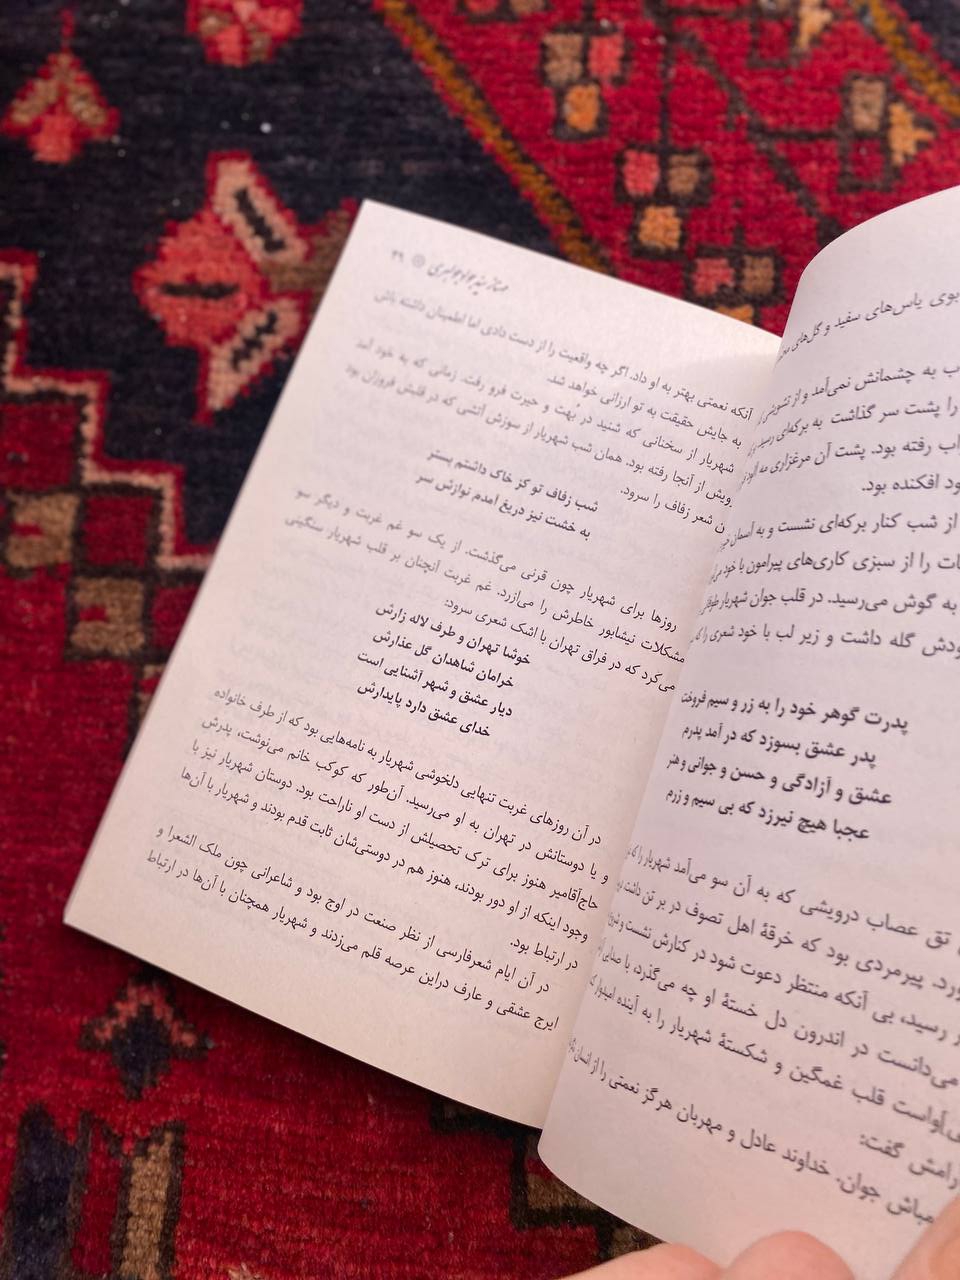 بوی یاس‌های سفید و گل‌های
ب به چشمانش نمی‌آمد و از تشویش
را پشت سر گذاشت به برکه‌ای رسید.
اب رفته بود. پشت آن مرغزاری مه آلود
ود افکنده بود.
از شب کنار برکه‌ای نشست و به آسمان
ات را از سبزی کاری‌های پیرامون با خود
به گوش می‌رسید. در قلب جوان شهریار
ودش گله داشت و زیر لب با خود شعری را که
پدرت گوهر خود را به زر و سیم فروخت
پدر عشق بسوزد که در آمد پدرم
عشق و آزادگی و حسن و جوانی و هنر
عجبا هیچ نیرزد که بی سیم و زرم
تق عصاب درویشی که به آن سو می‌آمد شهریار را که
ورد. پیرمردی بود که خرقهٔ اهل تصوف در بر تن داشت
ر رسید، بی آنکه منتظر دعوت شود در کنارش نشست و
می‌دانست در اندرون دل خستهٔ او چه می‌گذرد، با صدایی
آواست قلب غمگین و شکستهٔ شهریار را به آینده امیدوار
رامش گفت:
مباش جوان. خداوند عادل و مهربان هرگز نعمتی را از انسان
۳۹
آنکه نعمتی بهتر به او داد. اگر چه واقعیت را از دست دادی اما اطمینان داشته باش
به جایش حقیقت به تو ارزانی خواهد شد.
شهریار از سخنانی که شنید در بُهت و حیرت فرو رفت. زمانی که به خود آمد
رویش از آنجا رفته بود. همان شب شهریار از سوزش آتشی که در قلبش فروزان بود
ن شعر زفاف را سرود.
شب زفاف تو کز خاک داشتم بستر
به خشت نیز دریغ آمدم نوازش سر
روزها برای شهریار چون قرنی می‌گذشت. از یک سو غم غربت و دیگر سو
مشکلات نیشابور خاطرش را می‌آزرد. غم غربت آنچنان بر قلب شهریار سنگینی
می‌کرد که در فراق تهران با اشک شعری سرود:
خوشا تهران و طرف لاله زارش
خرامان شاهدان گل عذارش
دیار عشق و شهر آشنایی است
خدای عشق دارد پایدارش
در آن روزهای غربت تنهایی دلخوشی شهریار به نامه‌هایی بود که از طرف خانواده
و یا دوستانش در تهران به او می‌رسید. آن‌طور که کوکب خانم می‌نوشت، پدرش
حاج‌آقامیر هنوز برای ترک تحصیلش از دست او ناراحت بود. دوستان شهریار نیز با
وجود اینکه از او دور بودند، هنوز هم در دوستی‌شان ثابت قدم بودند و شهریار با آن‌ها
در ارتباط بود.
در آن ایام شعرفارسی از نظر صنعت در اوج بود و شاعرانی چون ملک الشعرا و
ایرج عشقی و عارف دراین عرصه قلم می‌زدند و شهریار همچنان با آن‌ها در ارتباط